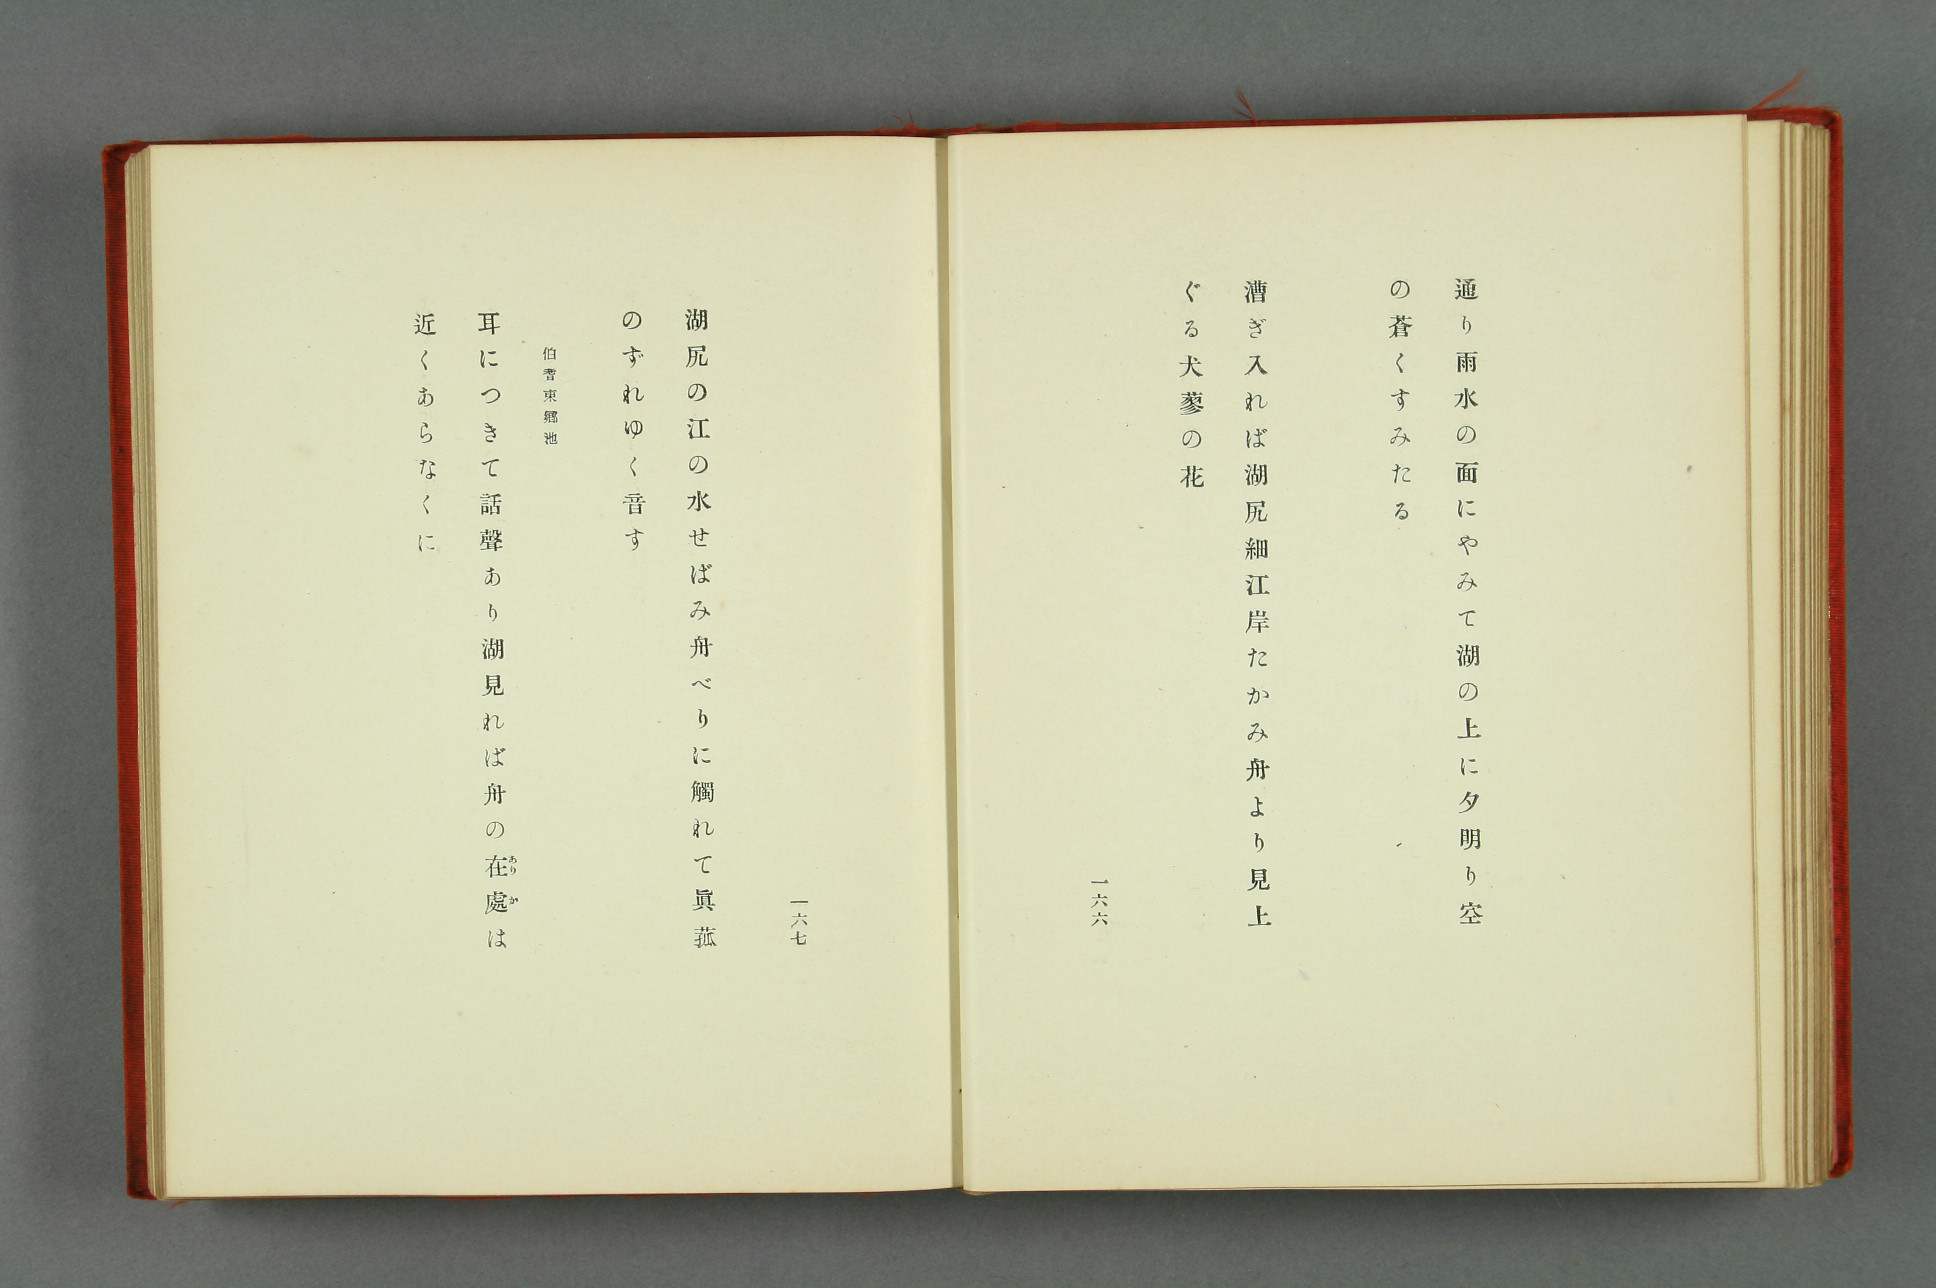 通り雨水の面にやみて湖の上に夕明り空
の蒼くすみたる
漕ぎ入れば湖尻細江岸たかみ舟より見上
ぐる犬蓼の花
一六六
湖尻の江の水せばみ舟べりに觸れて眞菰
のずれゆく音す
伯耆東郷池
耳につきて話聲あり湖見れば舟の在處は
ありか
近くあらなくに
一六七